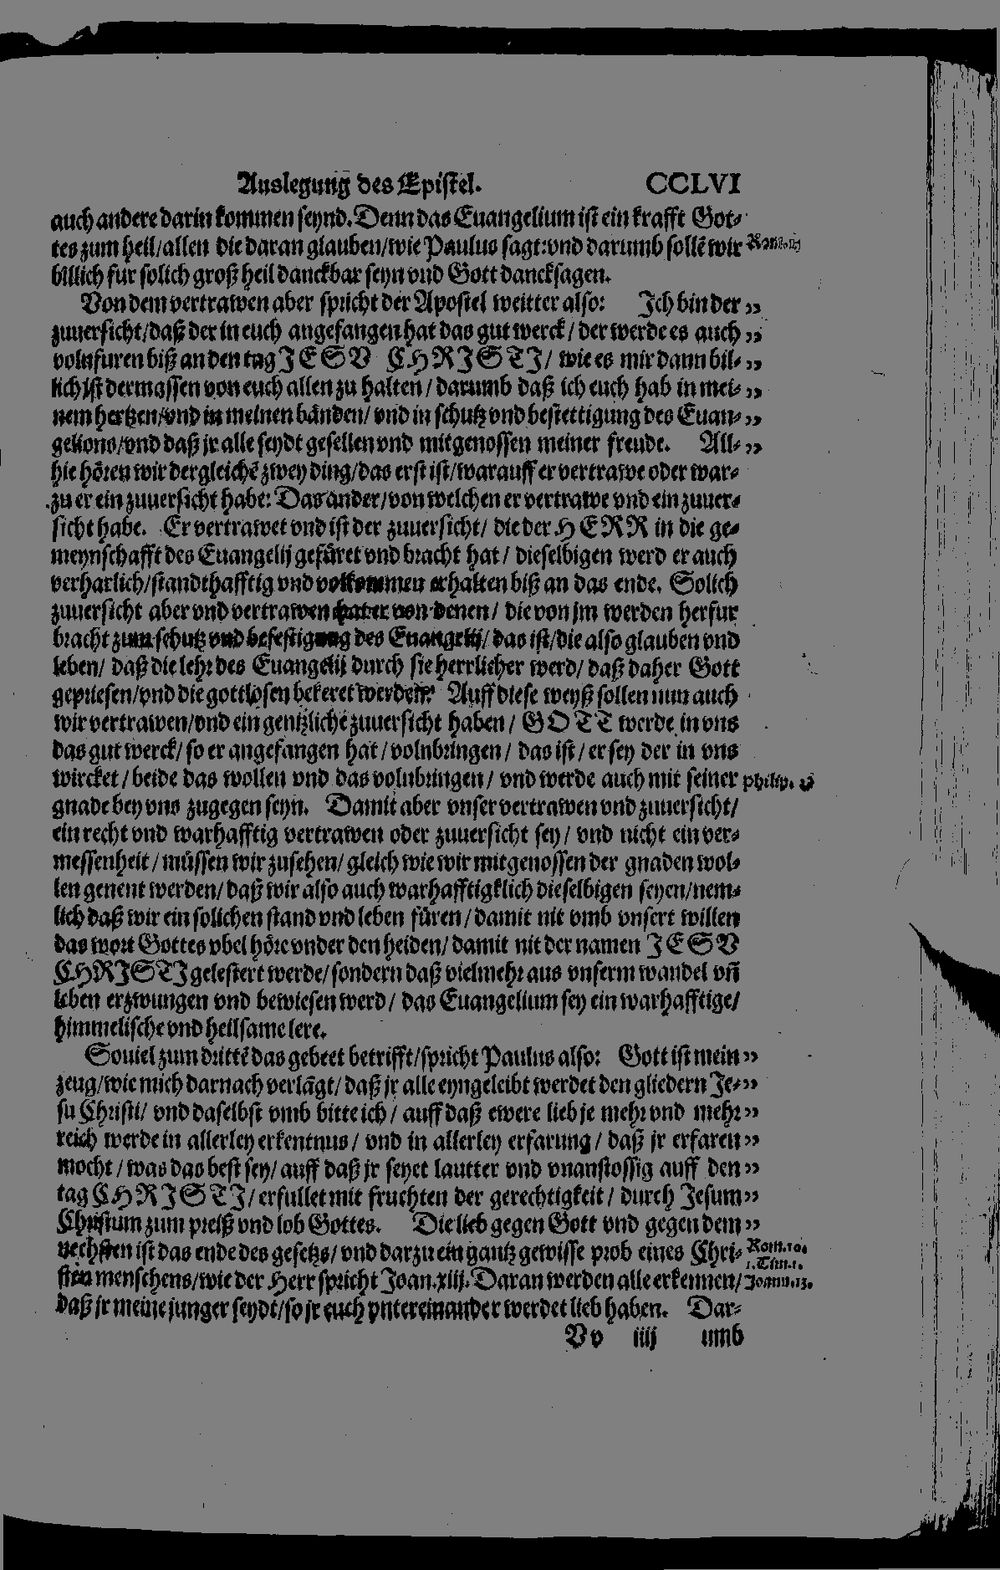 Auslegung des Epistel. CCLVI
auch andere darin kommen seynd. Denn das Euangelium ist ein krafft Got-
tes zum heil/allen die daran glauben/wie Paulus sagt: vnd darumb sollē wir
billich fur solich groß heil danckbar seyn vnd Gott dancksagen.
Von dem vertrawen aber spricht der Apostel weitter also: Ich bin der „
zuuersicht/daß der in euch angefangen hat das gut werck/der werde es auch „
volnfuren biß an den tag JESV CHRISTI/ wie es mir dann bil- „
lich ist dermassen von euch allen zu halten/ darumb daß ich euch hab in mei- „
nem hertzen/vnd in meinen bånden/ vnd in schutz vnd bestettigung des Euan- „
gelions/vnd daß jr alle seydt gesellen vnd mitgenossen meiner freude. All- „
hie hôren wir dergleichē zwey ding/das erst ist/warauff er vertrawe oder war-
zu er ein zuuersicht habe: Das ander/von welchen er vertrawe vnd ein zuuer-
sicht habe. Er vertrawet vnd ist der zuuersicht/ die der HERR in die ge-
meynschafft des Euangelij gefüret vnd bracht hat/ dieselbigen werd er auch
verharlich/standthafftig vnd volkommen erhalten biß an das ende. Solich
zuuersicht aber vnd vertrawen hat er von denen/ die von jm werden herfur
bracht zum schutz vnd befestigung des Euangelij/ das ist/die also glauben vnd
leben/ daß die lehr des Euangelij durch sie herrlicher werd/ daß daher Gott
gepriesen/vnd die gottlosen bekeret werden. Auff diese weyß sollen nun auch
wir vertrawen/vnd ein gentzlichē zuuersicht haben/ GOTT werde in vns
das gut werck/ so er angefangen hat/ volnbringen/ das ist/ er sey der in vns
wircket/ beide das wollen vnd das volnbringen/ vnd werde auch mit seiner Philip.
gnade bey vns zugegen seyn. Damit aber vnser vertrawen vnd zuuersicht/
ein recht vnd warhafftig vertrawen oder zuuersicht sey/ vnd nicht ein ver-
messenheit/ müssen wir zusehen/ gleich wie wir mitgenossen der gnaden wol-
len genent werden/ daß wir also auch warhafftigklich dieselbigen seyen/nem-
lich daß wir ein solichen stand vnd leben füren/ damit nit vmb vnsert willen
das wort Gottes vbel hôre vnder den heiden/ damit nit der namen JESV
CHRISTI gelestert werde/sondern daß vielmehr aus vnserm wandel vñ
leben erzwungen vnd bewiesen werd/ das Euangelium sey ein warhafftige/
himmelische vnd heilsame lere.
Souiel zum drittē das gebeet betrifft/spricht Paulus also: Gott ist mein „
zeug/wie mich darnach verlāgt/ daß jr alle eyngeleibt werdet den gliedern Je- „
su Christi/ vnd daselbst vmb bitte ich/ auff daß ewere lieb je mehr vnd mehr „
reich werde in allerley erkentnus/ vnd in allerley erfarung/ daß jr erfaren „
mocht/ was das best sey/ auff daß jr seyet lautter vnd vnanstossig auff den „
tag CHRISTI/ erfullet mit fruchten der gerechtigkeit/ durch Jesum „
Christum zum preiß vnd lob Gottes. Die lieb gegen Gott vnd gegen dem „
nechsten ist das ende des gesetzs/ vnd darzu ein gantz gewisse prob eines Chri- Rom.10.
1.Tim.1.
sten menschens/wie der Herr spricht Joan.xiij. Daran werden alle erkennen/ Joann.13.
daß jr meine junger seydt/so jr euch vntereinander werdet lieb haben. Dar-
Vv iiij umb